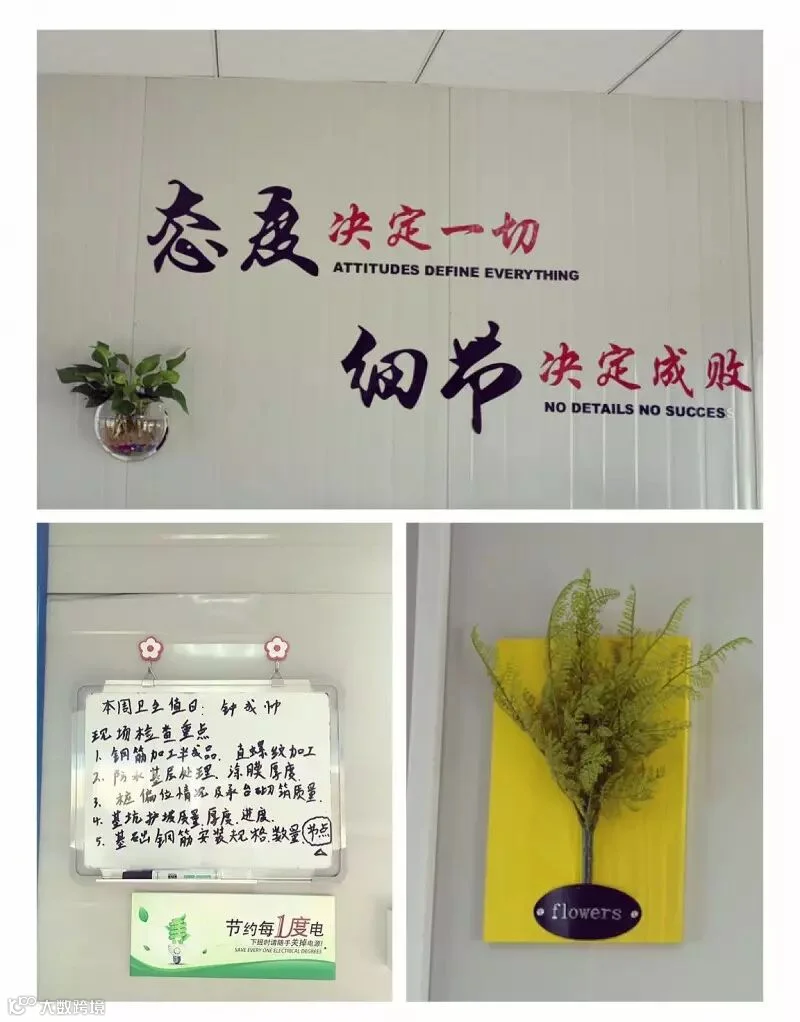 态度决定一切
ATTITUDES DEFINE EVERYTHING
细节决定成败
NO DETAILS NO SUCCESS
本周卫生值日: 钟成帅
现场检查重点
1、钢筋加工半成品、直螺纹加工
2、防水基层处理、涂膜厚度、
3、桩偏位情况及承台砌筑质量、
4、基坑护坡质量、厚度、进度、
5、基础钢筋安装规格、数量、节点
节约每1度电
下班时请随手关掉电源!
SAVE EVERY ONE ELECTRICAL DEGREES
flowers
大数跨境